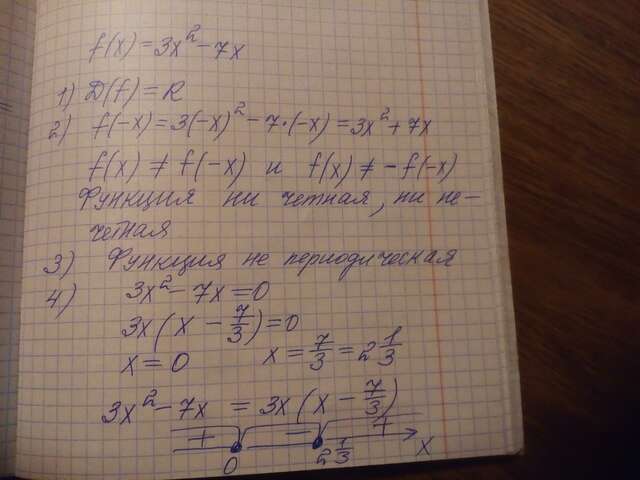 f(x) = 3x² - 7x
1) D(f) = R
2) f(-x) = 3(-x)² - 7·(-x) = 3x² + 7x
f(x) ≠ f(-x) и f(x) ≠ -f(-x)
Функция ни четная, ни не-
четная
3) Функция не периодическая
4) 3x² - 7x = 0
3x(x - 7/3) = 0
x = 0 x = 7/3 = 2 1/3
3x² - 7x = 3x(x - 7/3)
+ - +
0 2 1/3 x